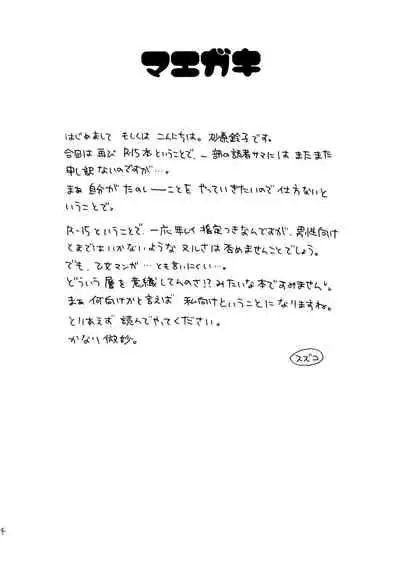 マエガキ
はじめまして もしくは こんにちは。砂原鈴子です。
今回は 再び R-15本ということで、一部の読者サマには またまた
申し訳ないのですが…。
まぁ 自分が たのしーことを やっていきたいので 仕方ないと
いうことで。
R-15 ということで、一応 年レイ 指定つきなんですが、男性向け
てまではいかないような ヌルさは 否めませんことでしょう。
でも、乙女マンガ … とも言いにくい…。
どういう 層を 意識してんのさ!? みたいな本ですみません。
まぁ 何向けかと言えば 私向けということに なりますね。
とりあえず 読んでやってください。
かなり 微妙。
スズコ
4